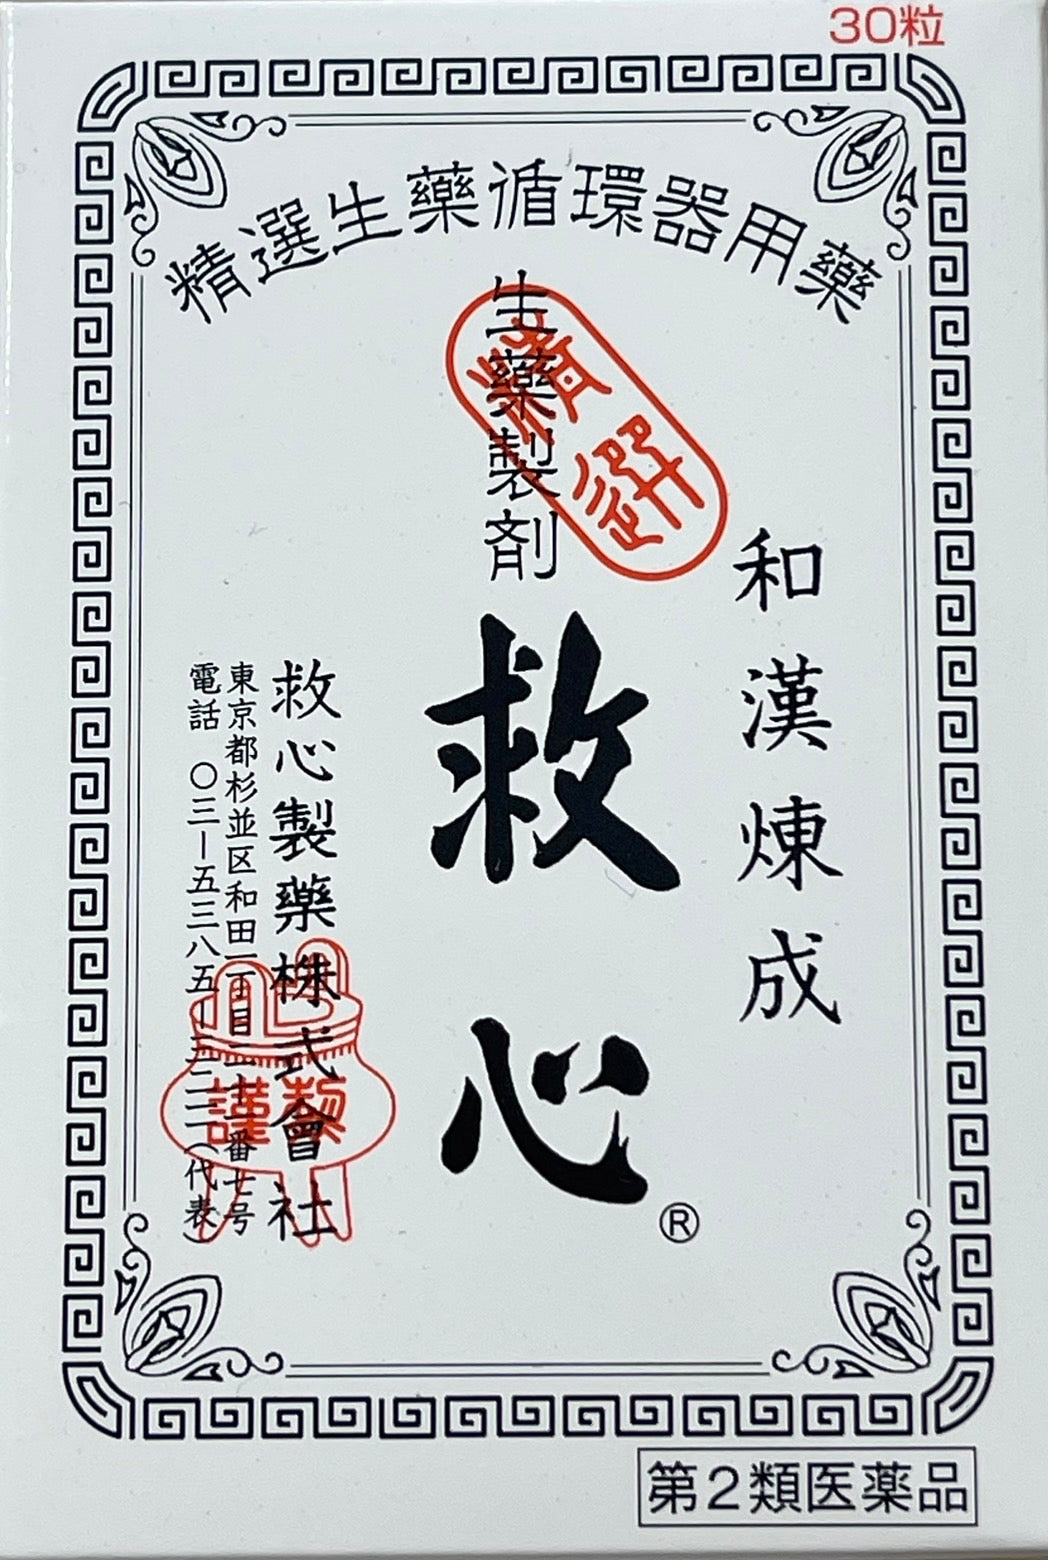 30粒
精選生藥循環器用藥
和漢煉成
生藥製剤
精選
救心
®
救心製藥株式會社
東京都杉並区和田一丁目二十一番七号
電話 〇三ー五三八五ー三二一一(代表)
謹製
第2類医薬品